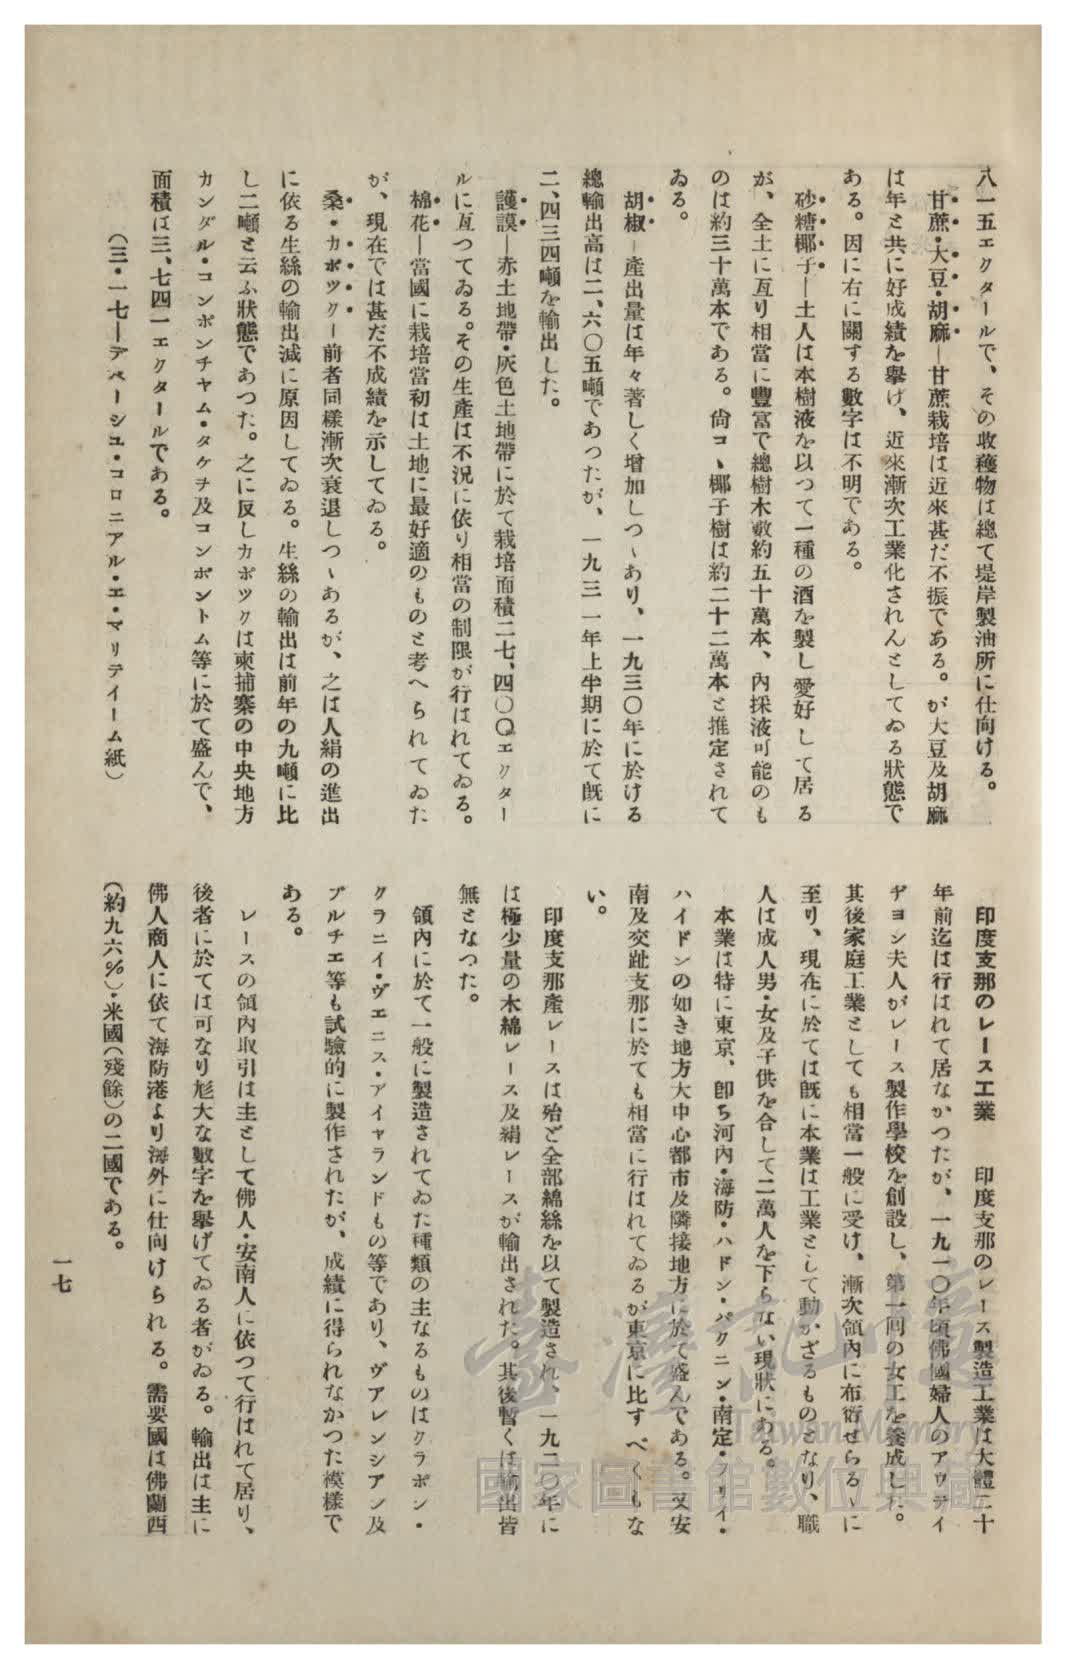 八一五エクタールで、その收穫物は總て堤岸製油所に仕向ける。
甘蔗・大豆・胡麻―甘蔗栽培は近來甚だ不振である。が大豆及胡麻
は年と共に好成績を擧げ、近來漸次工業化されんとしてゐる狀態で
ある。因に右に關する數字は不明である。
砂糖椰子―土人は本樹液を以つて一種の酒を製し愛好して居る
が、全土に亙り相當に豐富で總樹木數約五十萬本、內採液可能のも
のは約三十萬本である。尙コヽ椰子樹は約二十二萬本と推定されて
ゐる。
胡椒―產出量は年々著しく增加しつヽあり、一九三〇年に於ける
總輸出高は二、六〇五噸であつたが、一九三一年上半期に於て既に
二、四三四噸を輸出した。
護謨―赤土地帶・灰色土地帶に於て栽培面積二七、四〇〇エクター
ルに亙つてゐる。その生產は不況に依り相當の制限が行はれてゐる。
棉花―當國に栽培當初は土地に最好適のものと考へられてゐた
が、現在では甚だ不成績を示してゐる。
桑・カポツク―前者同樣漸次衰退しつヽあるが、之は人絹の進出
に依る生絲の輸出減に原因してゐる。生絲の輸出は前年の九噸に比
し二噸と云ふ狀態であつた。之に反しカポツクは柬捕寨の中央地方
カンダル・コンポンチヤム・タケヲ及コンポントム等に於て盛んで、
面積は三、七四一エクタールである。
（三・一七―デペーシユ・コロニアル・エ・マリテイーム紙）
印度支那のレース工業　印度支那のレース製造工業は大體二十
年前迄は行はれて居なかつたが、一九一〇年頃佛國婦人のアウデイ
ヂヨン夫人がレース製作學校を創設し、第一囘の女工を養成した。
其後家庭工業としても相當一般に受け、漸次領內に布衍せらるヽに
至り、現在に於ては既に本業は工業として動かざるものとなり、職
人は成人男・女及子供を合して二萬人を下らない現狀にある。
本業は特に東京、卽ち河內・海防・ハドン・バクニン・南定・フリイ・
ハイドンの如き地方大中心都市及隣接地方に於て盛んである。又安
南及交趾支那に於ても相當に行はれてゐるが東京に比すべくもな
い。
印度支那產レースは殆ど全部綿絲を以て製造され、一九二〇年に
は極少量の木綿レース及絹レースが輸出された。其後暫くは輸出皆
無となつた。
領內に於て一般に製造されてゐた種類の主なるものはクラポン・
クラニイ・ヴエニス・アイヤランドもの等であり、ヴアレンシアン及
ブルチエ等も試驗的に製作されたが、成績に得られなかつた模樣で
ある。
レースの領內取引は主として佛人・安南人に依つて行はれて居り、
後者に於ては可なり尨大な數字を擧げてゐる者がゐる。輸出は主に
佛人商人に依て海防港より海外に仕向けられる。需要國は佛蘭西
（約九六％）・米國（殘餘）の二國である。
一七
臺灣記憶
Taiwan Memory
國家圖書館數位典藏